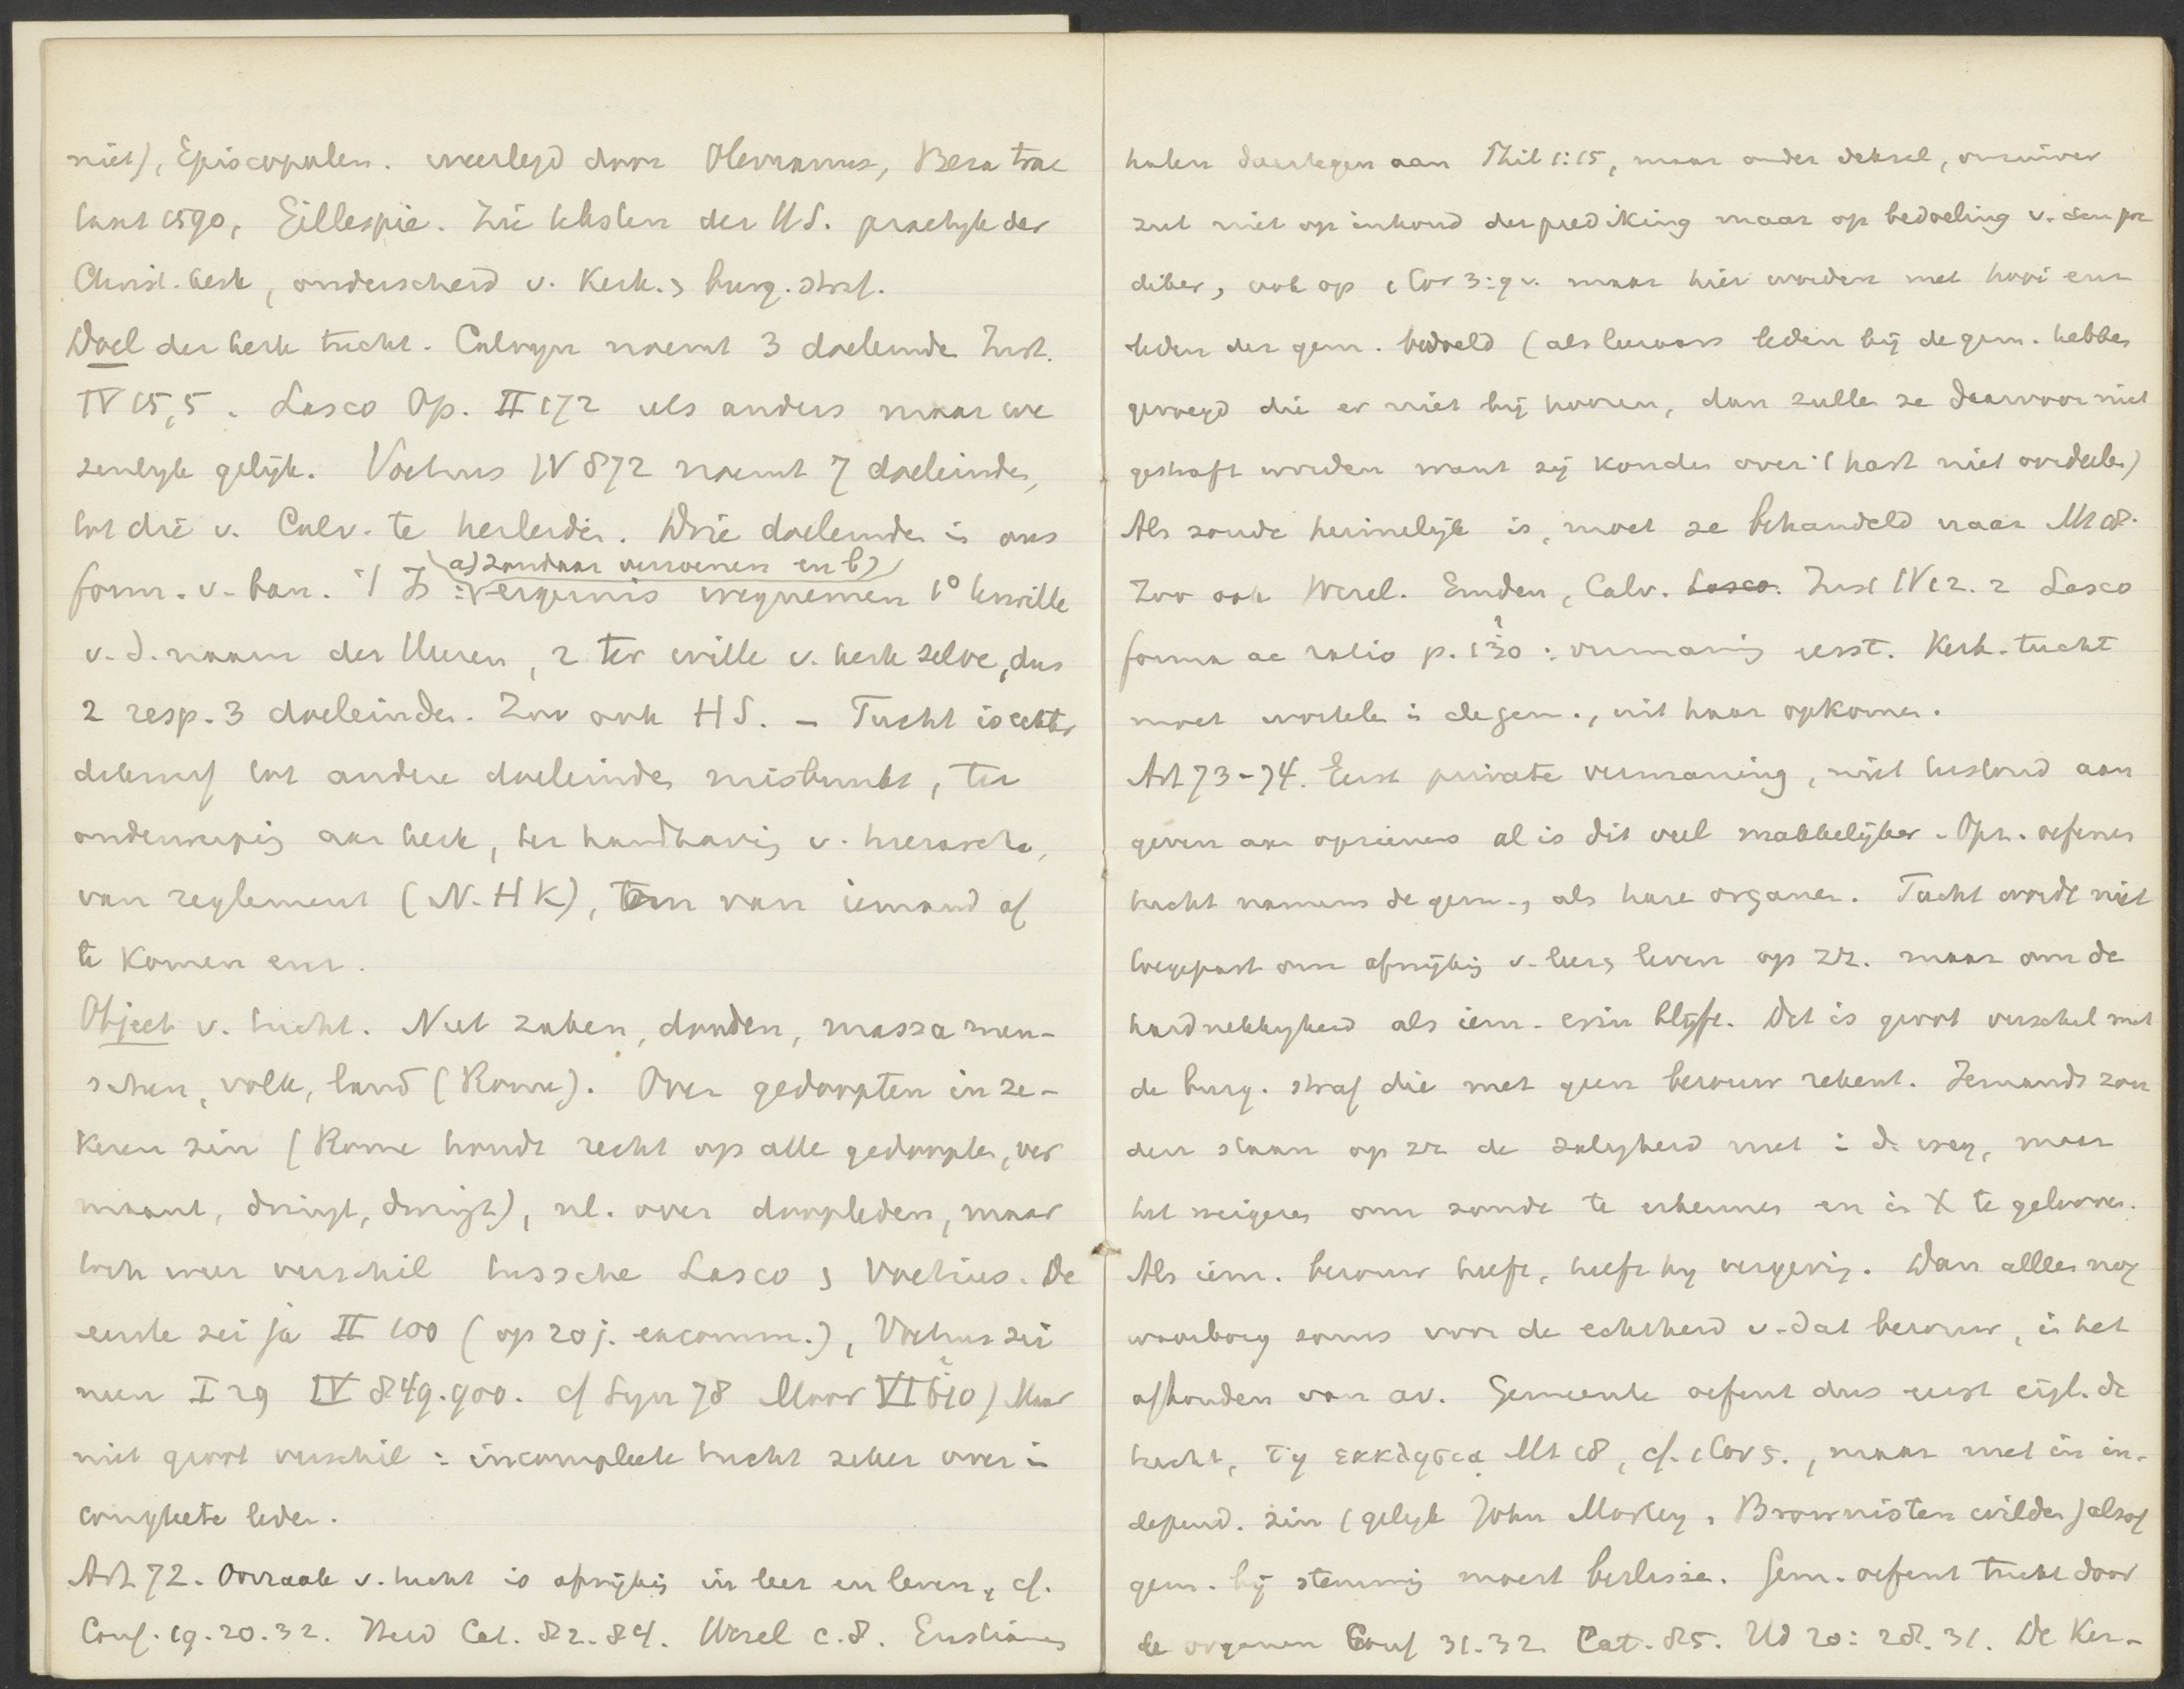 niet), Episcopalen. weerlegd door Olevianus, Beza trac
taat 1590, Gillespie. Zie teksten der H.S. practijk der
Christ. kerk, onderscheid v. kerk. & burg. straf.
Doel der kerk tucht. Calvyn noemt 3 doeleinde Inst.
IV 15,5. Lasco Op. II 172 iets anders maar we
zenlyk gelijk. Voetius IV 872 noemt 7 doeleinden,
tot die v. Calv. te herleiden. Drie doeleinde in ons
form. v. ban.
a) zondaar verzoenen en b)
ergernis wegnemen 1° terwille
v. d. naam des Heeren, 2 ter wille v. kerk zelve, dus
2 resp. 3 doeleinden. Zoo ook H S. – Tucht is echter
dikwerf tot andere doeleinden misbruikt, ter
onderwerping aan kerk, ter handhaving v. hierarchie,
van reglement (N. H K), om van iemand af
te komen enz.
Object v. tucht. Niet zaken, dooden, massa men-
schen, volk, land (Rome). Over gedoopten in ze-
keren zin (Rome houdt recht op alle gedoopten, ver
maant, dreigt, dwingt), nl. over doopleden, maar
toch weer verschil tussche Lasco & Voetius. De
eerste zei ja II 100 (op 20 j. excomm.), Voetius zei
neen I 29 IV 849.900. cf Syn 78 Moor VI 610) Maar
niet groot verschil: incomplete tucht zeker over in
complete leden.
Art 72. Oorzaak v. tucht is afwijking in leer en leven, cf.
Conf. 19.20.32. Heid Cat. 82.84. Wesel c.8. Erastianen
halen daartegen aan Phil 1:15, maar onder deksel, onzuiver
ziet niet op inhoud der prediking maar op bedoeling v. den pre
diker, ook op 1 Cor 3:9 v. maar hier worden met hooi enz
leden der gem. bedoeld (als leeraars leden bij de gem. hebben
gevoegd die er niet bij hooren, dan zulle ze daarvoor niet
gestraft worden want zij konden over 't hart niet oordeelen)
Als zonde heimelijk is, moet ze behandeld naar Mt 18.
Zoo ook Wesel. Emden, Calv. Lasco. Inst IV 12.2 Lasco
forma ac ratio p. 130: vermaning eerst. Kerk. tucht
moet wortelen in de gem., uit haar opkomen.
Art 73-74. Eerst private vermaning, niet terstond aan
geven aan opzieners al is dit veel makkelijker. Opz. oefenen
tucht namens de gem., als hare organen. Tucht wordt niet
toegepast om afwijking v. leer & leven op zz. maar om de
hardnekkigheid als iem. erin blijft. Dit is groot verschil met
de burg. straf die met geen berouw rekent. Iemands zon
den staan op zz de zaligheid niet in d. weg, maar
het weigeren om zonde te erkennen en in X te gelooven.
Als iem. berouw heeft, heeft hy vergeving. Dan alleen nog
waarborg soms voor de echtheid v. dat berouw, is het
afhouden van av. Gemeente oefent dus eerst eigl. de
tucht, τῃ εκκλησιᾳ Mt 18, cf. 1 Cor 5., maar niet in in-
depend. zin (gelyk John Morley, Brownisten wilden) alsof
gem. bij stemming moest beslissen. Gem. oefent tucht door
de organen Conf 31.32 Cat. 85. Hd 20:28.31. De Ker-